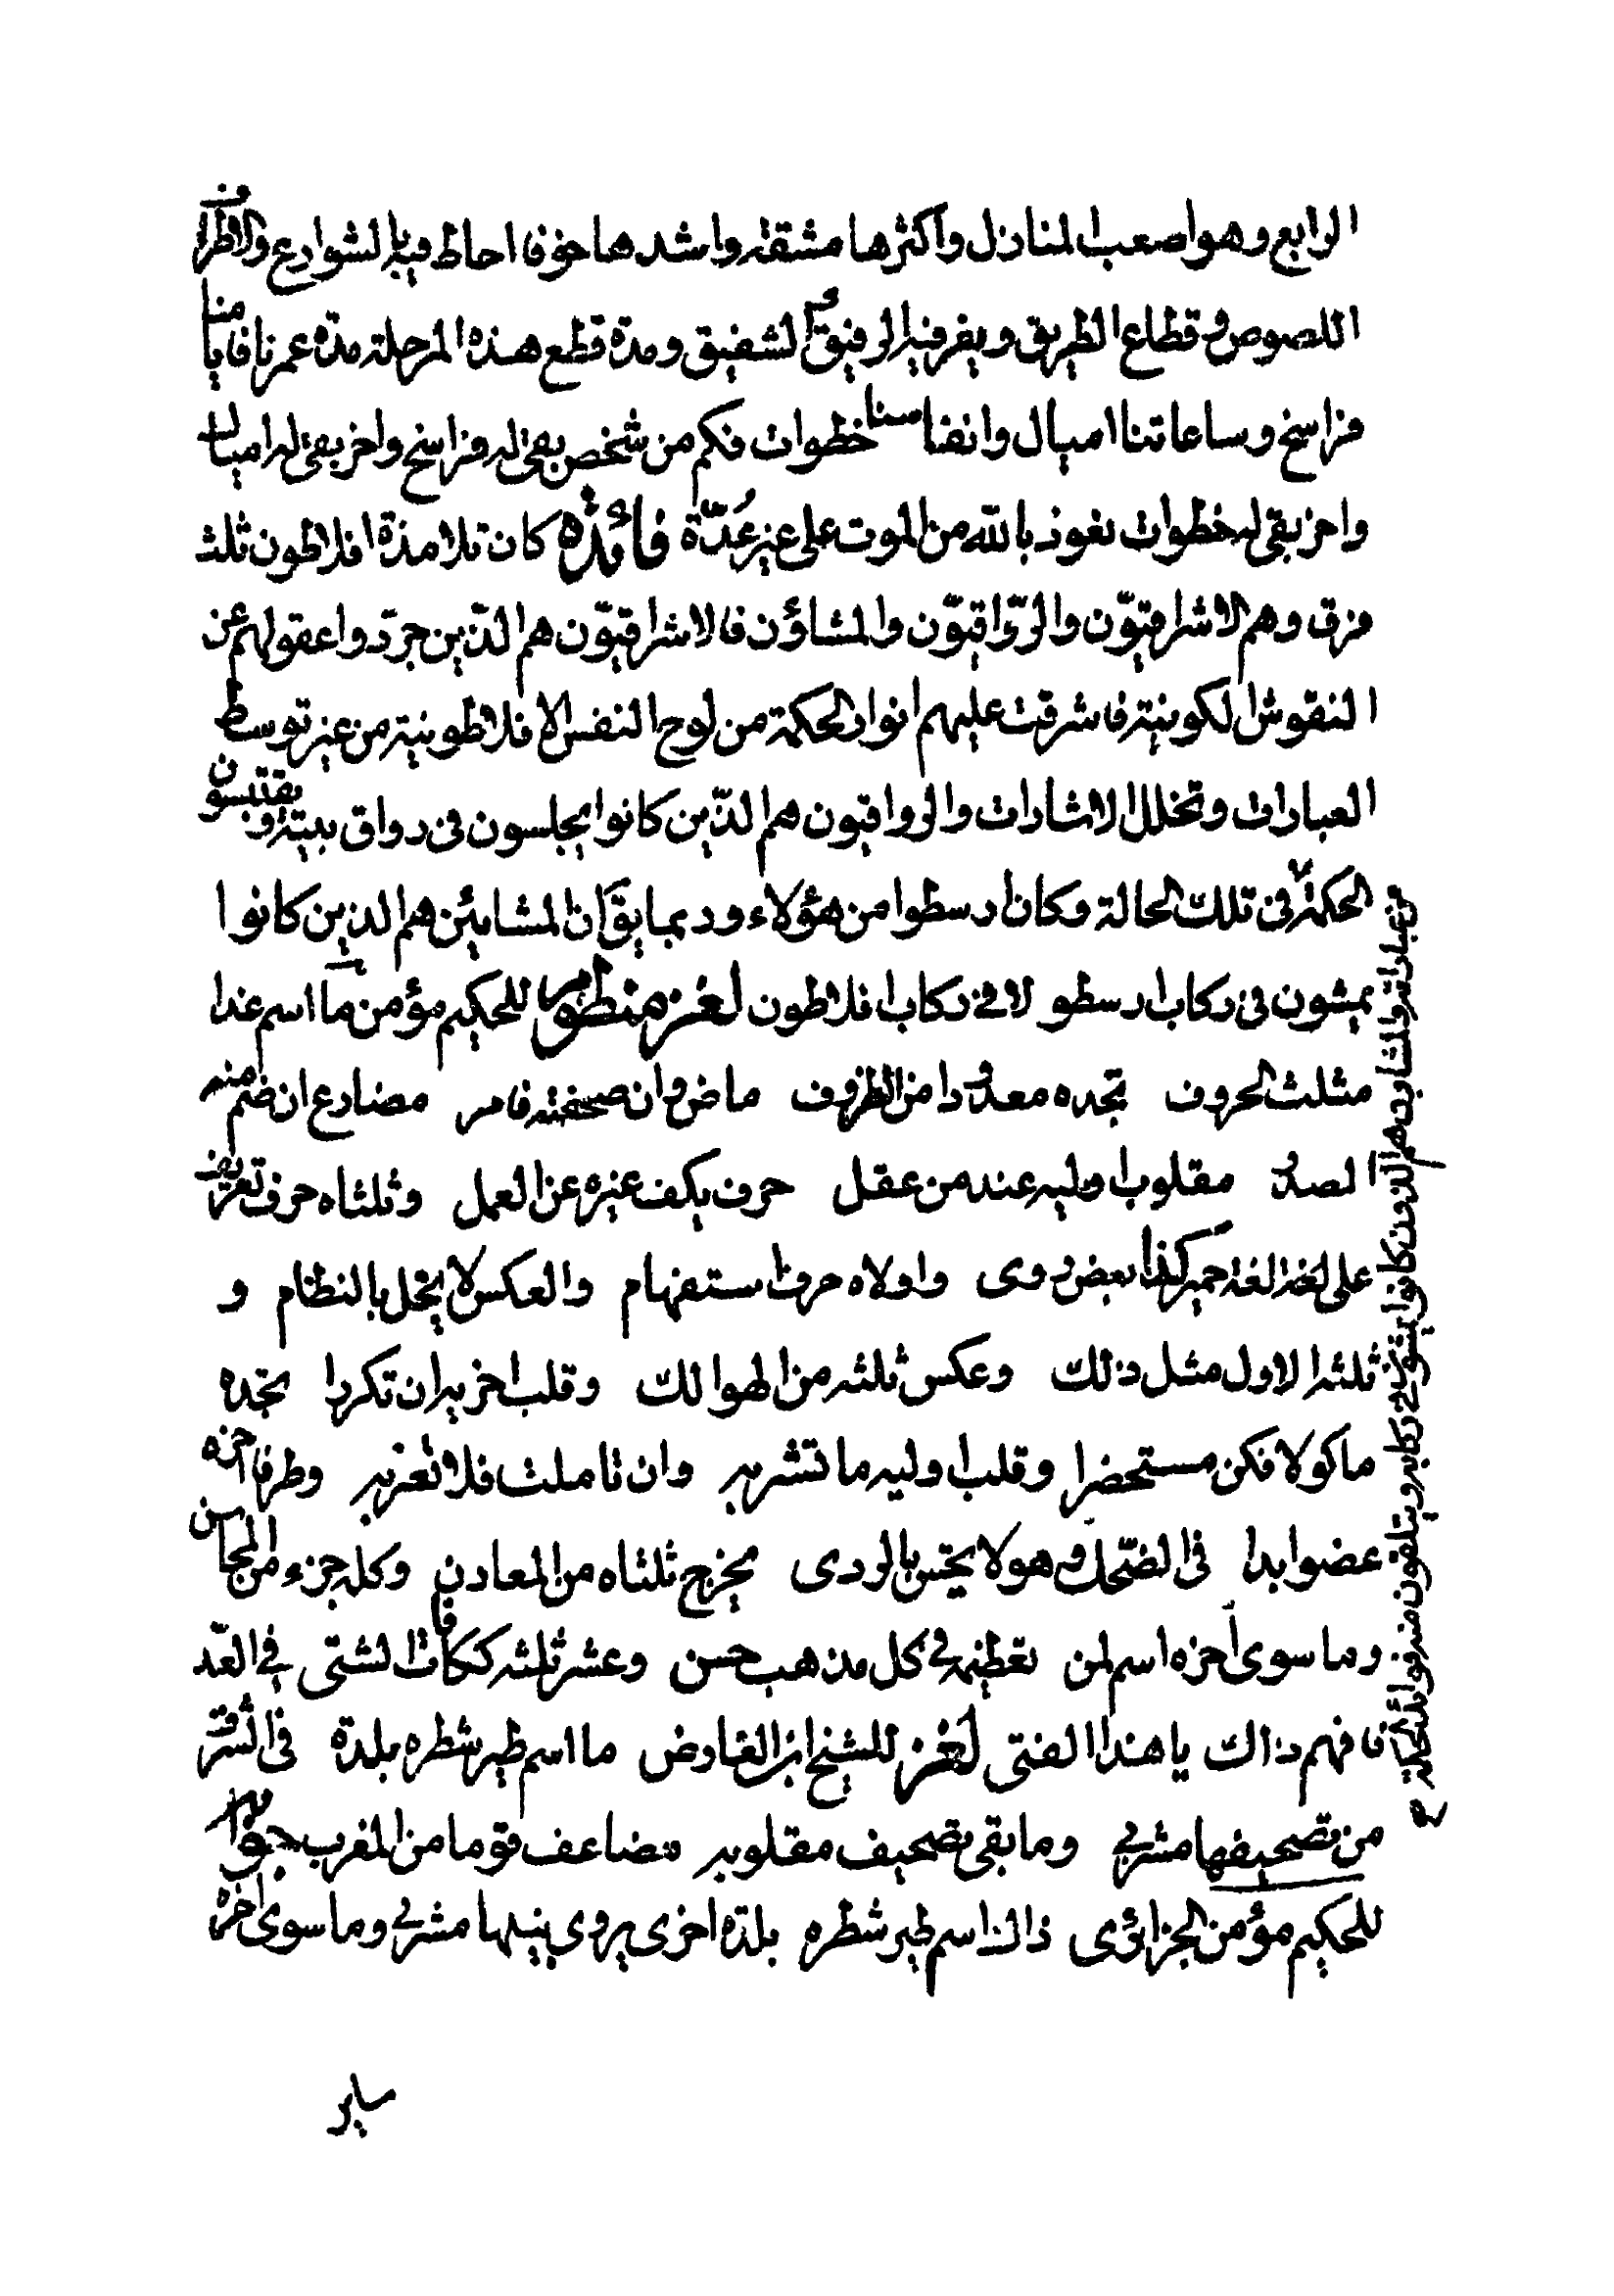 الرابع وهو اصعب المنازل واكثرها مشقة واشدها خوفا احاط فيه بالشوارع والاطراف
اللصوص وقطاع الطريق ويفر فيه الرفيق الشفيق ومدة قطع هذه المرحلة مدة عمرنا فايامنا
فراسخ وساعاتنا اميال وانفاسنا خطوات فكم من شخص بقى له فراسخ واخر بقى له اميال
واخر بقى له خطوات نعوذ بالله من الموت على غير عُدّة فائدة كان تلامذة افلاطون ثلث
فرق وهم الاشراقيّون والرّواقيّون والمشاؤن فالاشراقيّون هم الذّين جرّدوا عقولهم عن
النقوش الكونية فاشرقت عليهم انوار الحكمة من لوح النفس الافلاطونية من غير توسط
العبارات وتخلل الاشارات والرواقيون هم الذّين كانوا يجلسون فى رواق بيته ويقتبسون
الحكمة فى تلك الحالة وكان ارسطوا من هؤلاء وربما يق ان المشايئن هم الذين كانوا
يمشون فى ركاب ارسطو لا فى ركاب افلاطون لغز منظوم للحكيم مؤمن ما اسم غدا
مثلث الحروف تجده معدودا من الظروف ماض وان صحفته فامر مضارع ان ضم منه
الصدر مقلوب اوليه عند من عقل حرف يكف غيره عن العمل وثلثاه حرف تعريف
على لغة لغة حمير كذا بعض روى واولاه حرف استفهام والعكس لا يخل بالنظام و
ثلثه الاول مثل ذلك وعكس ثلثه من الهوالك وقلب اخريه ان تكررا تجده
ماكولا فكن مستحضرا وقلب اوليه ما تشربه وان تاملت فلا تعزبه وطرفا اخره
عضوا بدا فى الضّحك وهو لا يختس بالردى مخرج ثلثاه من المعادن وكله جزء من المجاسن
وما سوى اخره اسم لمن تعطيه فى كل مذهب حسن وعشر ثلثه ككافات الشتى فى العدّ
فافهم ذاك يا هذا الفتى لغز للشيخ ابن الفارض ما اسم طير شطره بلدة فى الشرق
من تصحيفها مشربى وما بقى تصحيف مقلوبه مضاعف قوما من المغرب جوابه
للحكيم مؤمن الجزائرى ذاك اسم طير شطره بلدة اخرى يروى بنيها مشربى وما سوى اخره
من عباراته والمشاؤن هم الذين كانوا يمشون فى ركابه ويتلقون منه فوائد الحكمة